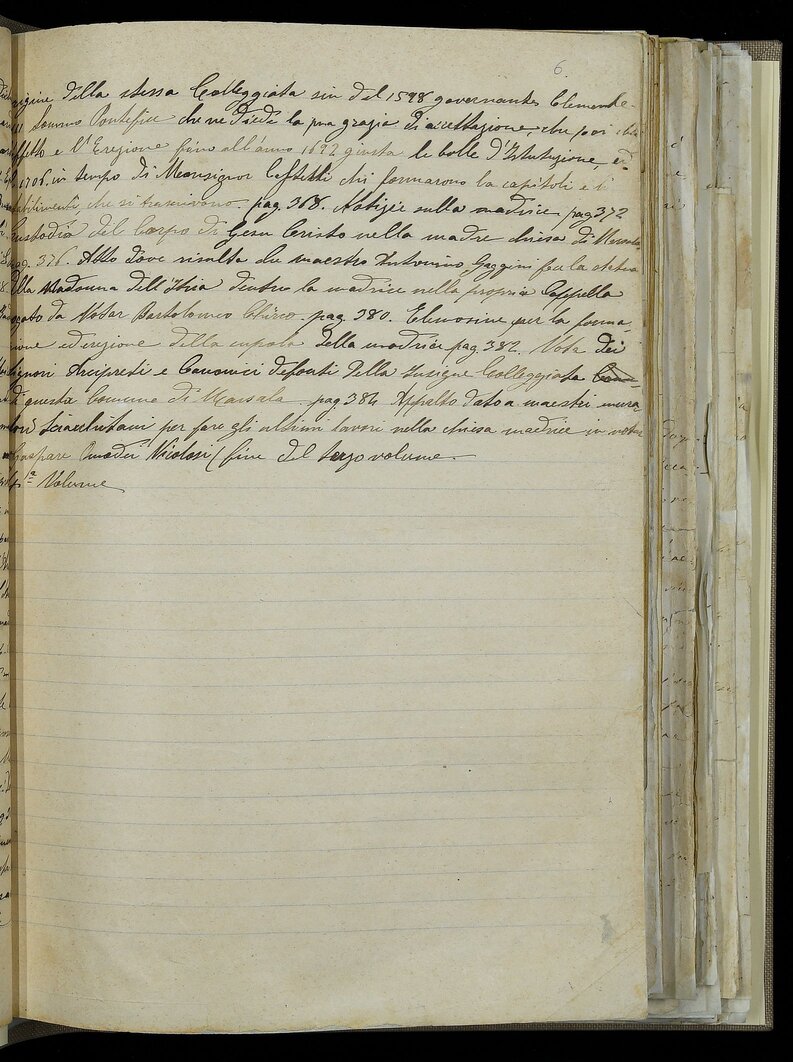 6.
origine della stessa Colleggiata sin del 1598 governante Clemente
Sommo Pontefice che ne diede la sua grazia di accettazione, che poi
effetto e l'Erezione fino all'anno 1692 giusta le bolle d'Istituzione, e
1706. in tempo di Monsignor Castelli chi formarono la capitoli e
stabilimenti, che si trascrivono. pag. 368. Notizie sulla madrice. pag 372
Custodia del Corpo di Gesu Cristo nella madre chiesa di Marsala
pag. 376. Atto dove risulta che maestro Antonino Gaggini fece la statua
della Madonna dell'Itria dentro la madrice nella propria Cappella
da Notar Bartolomeo Chirco. pag. 380. Elemosine per la forma
zione ed erezione della cupola della madrice pag. 382. Nota dei
Signori Arcipreti e Canonici defonti della Insigne Colleggiata
di questa Comune di Marsala. pag. 384 Appalto dato a maestri mura
tori Sciacchitani per fare gli ultimi lavori nella chiesa madrice in notar
Gaspare Nicolosi (fine del terzo volume.
Volume